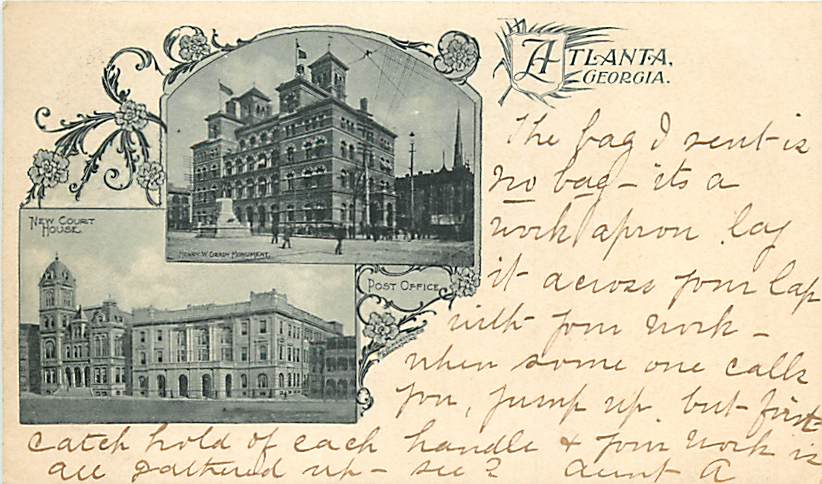 ATLANTA,
GEORGIA.
NEW COURT
HOUSE.
HENRY W. GRADY MONUMENT.
POST OFFICE
The bag I sent is
no bag - its a
work apron lay
it across your lap
with your work -
when some one calls
you, jump up but first
catch hold of each handle & your work is
all gathered up - see? Aunt A